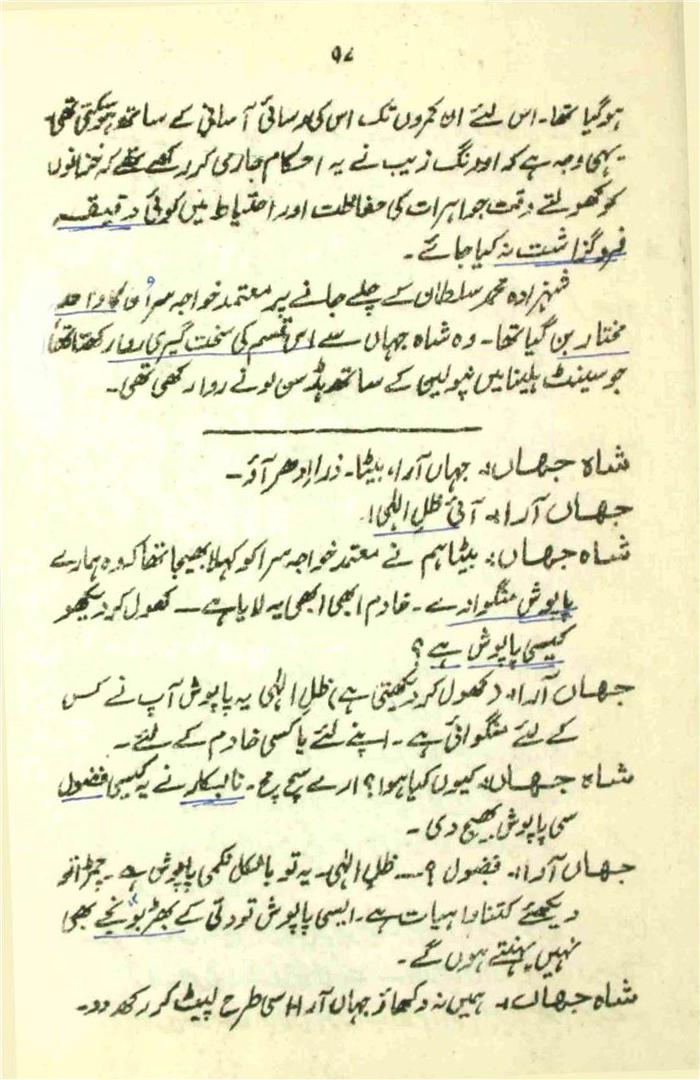 ۹۸
ہو گیا تھا۔ اس لئے ان کمروں تک اس کی رسائی آسانی کے ساتھ ہو سکتی تھی
یہی وجہ ہے کہ اورنگ زیب نے یہ احکام جاری کر رکھے تھے کہ خزانوں
کو کھولتے وقت جواہرات کی حفاظت اور احتیاط میں کوئی دقیقہ
فروگزاشت نہ کیا جائے۔
شہزادہ محمد سلطان کے چلے جانے پر معتمد خواجہ سرا اُن کا واحد
مختار بن گیا تھا۔ وہ شاہ جہاں سے اس قسم کی سخت گیری روا رکھتا تھا
جو سینٹ ہلینا میں نپولین کے ساتھ ہڈسن لو نے روا رکھی تھی۔
شاہ جہاں:۔ جہاں آرا، بیٹا۔ ذرا اِدھر آؤ۔
جہاں آرا:۔ آئی ظلِ الٰہی!۔
شاہ جہاں:۔ بیٹا ہم نے معتمد خواجہ سرا کو کہلا بھیجا تھا کہ وہ ہمارے
پاپوش منگوا دے۔ خادم ابھی ابھی یہ لایا ہے — کھول کر دیکھو
کیسی پاپوش ہے؟
جہاں آرا:۔ (کھول کر دیکھتی ہے) ظلِ الٰہی یہ پاپوش آپ نے کس
کے لئے منگوائی ہے۔ اپنے لئے یا کسی خادم کے لئے۔
شاہ جہاں:۔ کیوں کیا ہوا؟ ارے سچ مچ۔ نابکار نے یہ کیسی فضول
سی پاپوش بھیج دی۔
جہاں آرا:۔ فضول؟ ... ظلِ الٰہی۔ یہ تو بالکل نکمی پاپوش ہے۔ چمڑا تو
دیکھئے کتنا واہیات ہے۔ ایسی پاپوش تو دلی کے بھڑبونجے بھی
نہیں پہنتے ہوں گے۔
شاہ جہاں:۔ ہمیں نہ دکھاؤ جہاں آرا اسی طرح لپیٹ کر رکھ دو۔